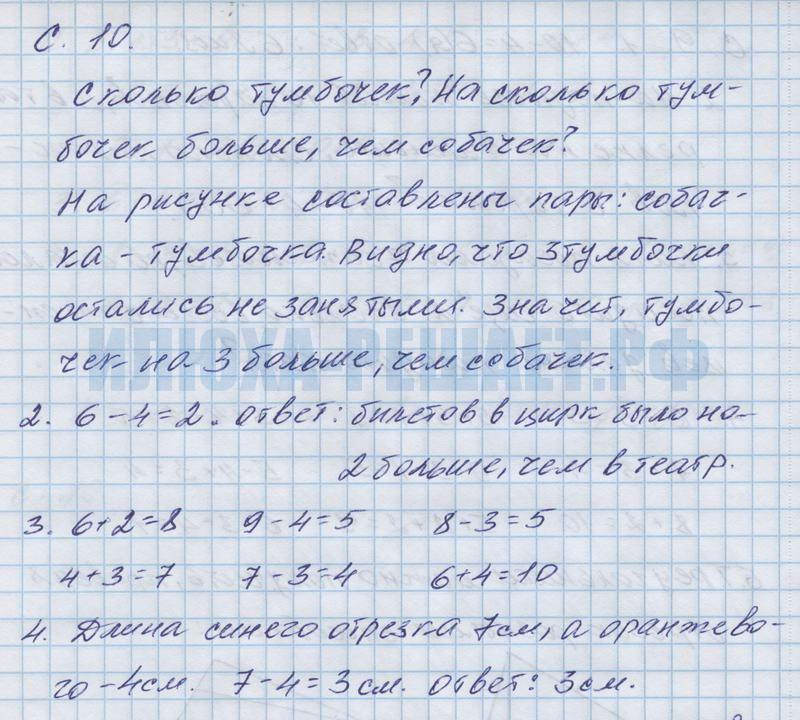 С. 10.
Сколько тумбочек? На сколько тум-
бочек больше, чем собачек?
На рисунке составлены пары: собач-
ка - тумбочка. Видно, что 3 тумбочки
остались не занятыми. Значит, тумбо-
чек на 3 больше, чем собачек.
ИЛЮХА-РЕШАЕТ.РФ
2. 6 - 4 = 2. Ответ: билетов в цирк было на
2 больше, чем в театр.
3. 6+2=8 9-4=5 8-3=5
4+3=7 7-3=4 6+4=10
4. Длина синего отрезка 7см, а оранжево-
го - 4см. 7-4=3см. Ответ: 3см.